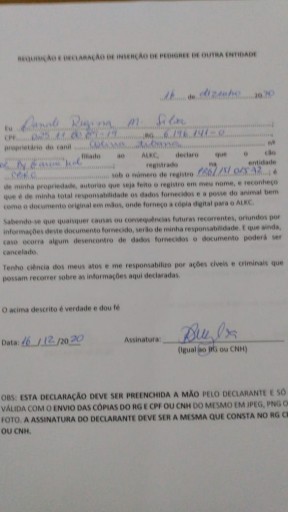 REQUISIÇÃO E DECLARAÇÃO DE INSERÇÃO DE PEDIGREE DE OUTRA ENTIDADE
16 de dezembro 2020
Eu Regina M. Silva
CPF RG
proprietário do canil nº
filiado ao ALKC, declaro que o cão
registrado na entidade
sob o número de registro , é
de minha propriedade, autorizo que seja feito o registro em meu nome, e reconheço
que é de minha total responsabilidade os dados fornecidos e a posse do animal bem
como o documento original em mãos, onde forneço a cópia digital para o ALKC.
Sabendo-se que quaisquer causas ou consequências futuras recorrentes, oriundos por
informações deste documento fornecido, serão de minha responsabilidade. E que ainda,
caso ocorra algum desencontro de dados fornecidos o documento poderá ser
cancelado.
Tenho ciência dos meus atos e me responsabilizo por ações cíveis e criminais que
possam recorrer sobre as informações aqui declaradas.
O acima descrito é verdade e dou fé
Data: 16/12/2020 Assinatura:
(Igual ao RG ou CNH)
OBS: ESTA DECLARAÇÃO DEVE SER PREENCHIDA A MÃO PELO DECLARANTE E SÓ
VÁLIDA COM O ENVIO DAS CÓPIAS DO RG E CPF OU CNH DO MESMO EM JPEG, PNG O
FOTO. A ASSINATURA DO DECLARANTE DEVE SER A MESMA QUE CONSTA NO RG C
OU CNH.